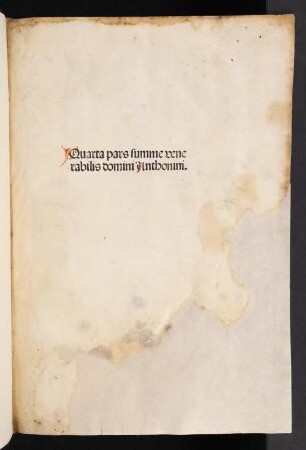 Quarta pars summe vene
rabilis domini Anthonini.